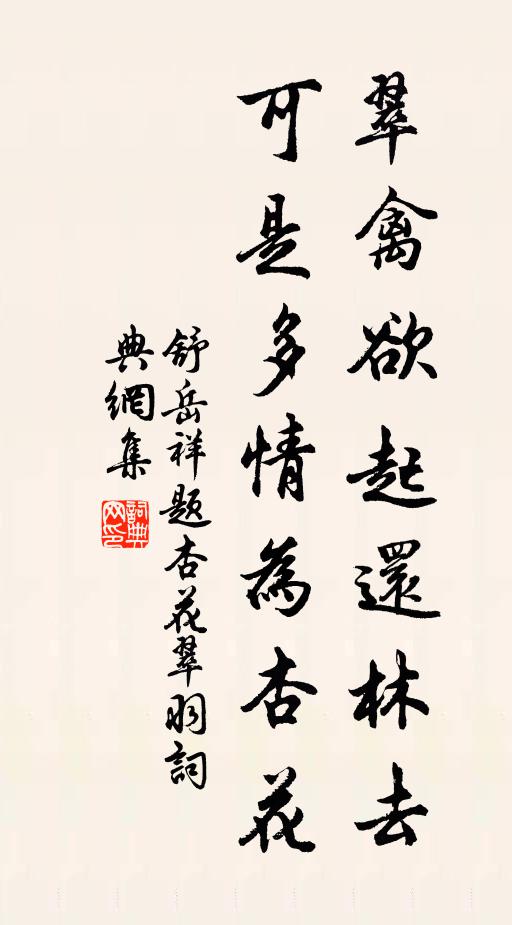 翠禽欲起還林去
可是多情為杏花
舒岳祥題杏花翠羽詞
典網集
詞典
网印